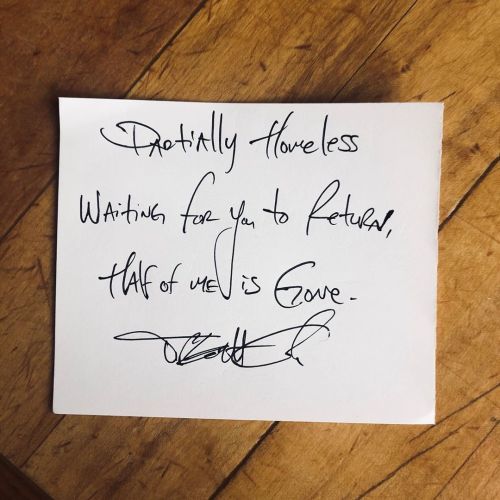 Partially Homeless
Waiting for you to Return,
Half of me is Gone.